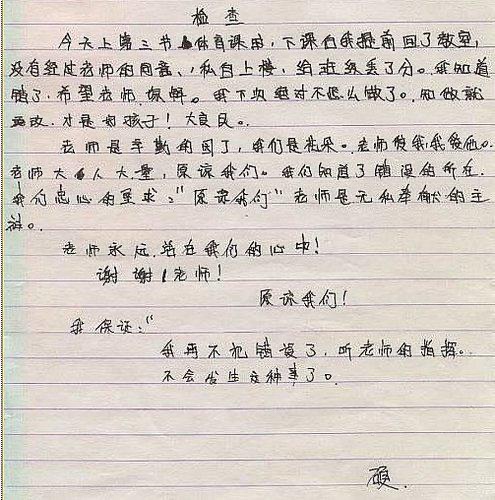 检 查
今天上第三节体育课时,下课后我提前回了教室,
没有经过老师的同意、私自上楼,给班级丢了分。我知道
错了,希望老师原解。我下次绝对不怎么做了。知做就
要改,才是好孩子!大良民。
老师是辛勤的园丁,我们是花朵。老师爱我,我爱他。
老师大人大量,原谅我们。我们知道了错误的所在,
我们忠心的要求:“原谅我们”老师是无私奉献的主
。
老师永远总在我们的心中!
谢谢!老师!
原谅我们!
我保证:“
我再不犯错误了,听老师的指挥。
不会发生这种事了。